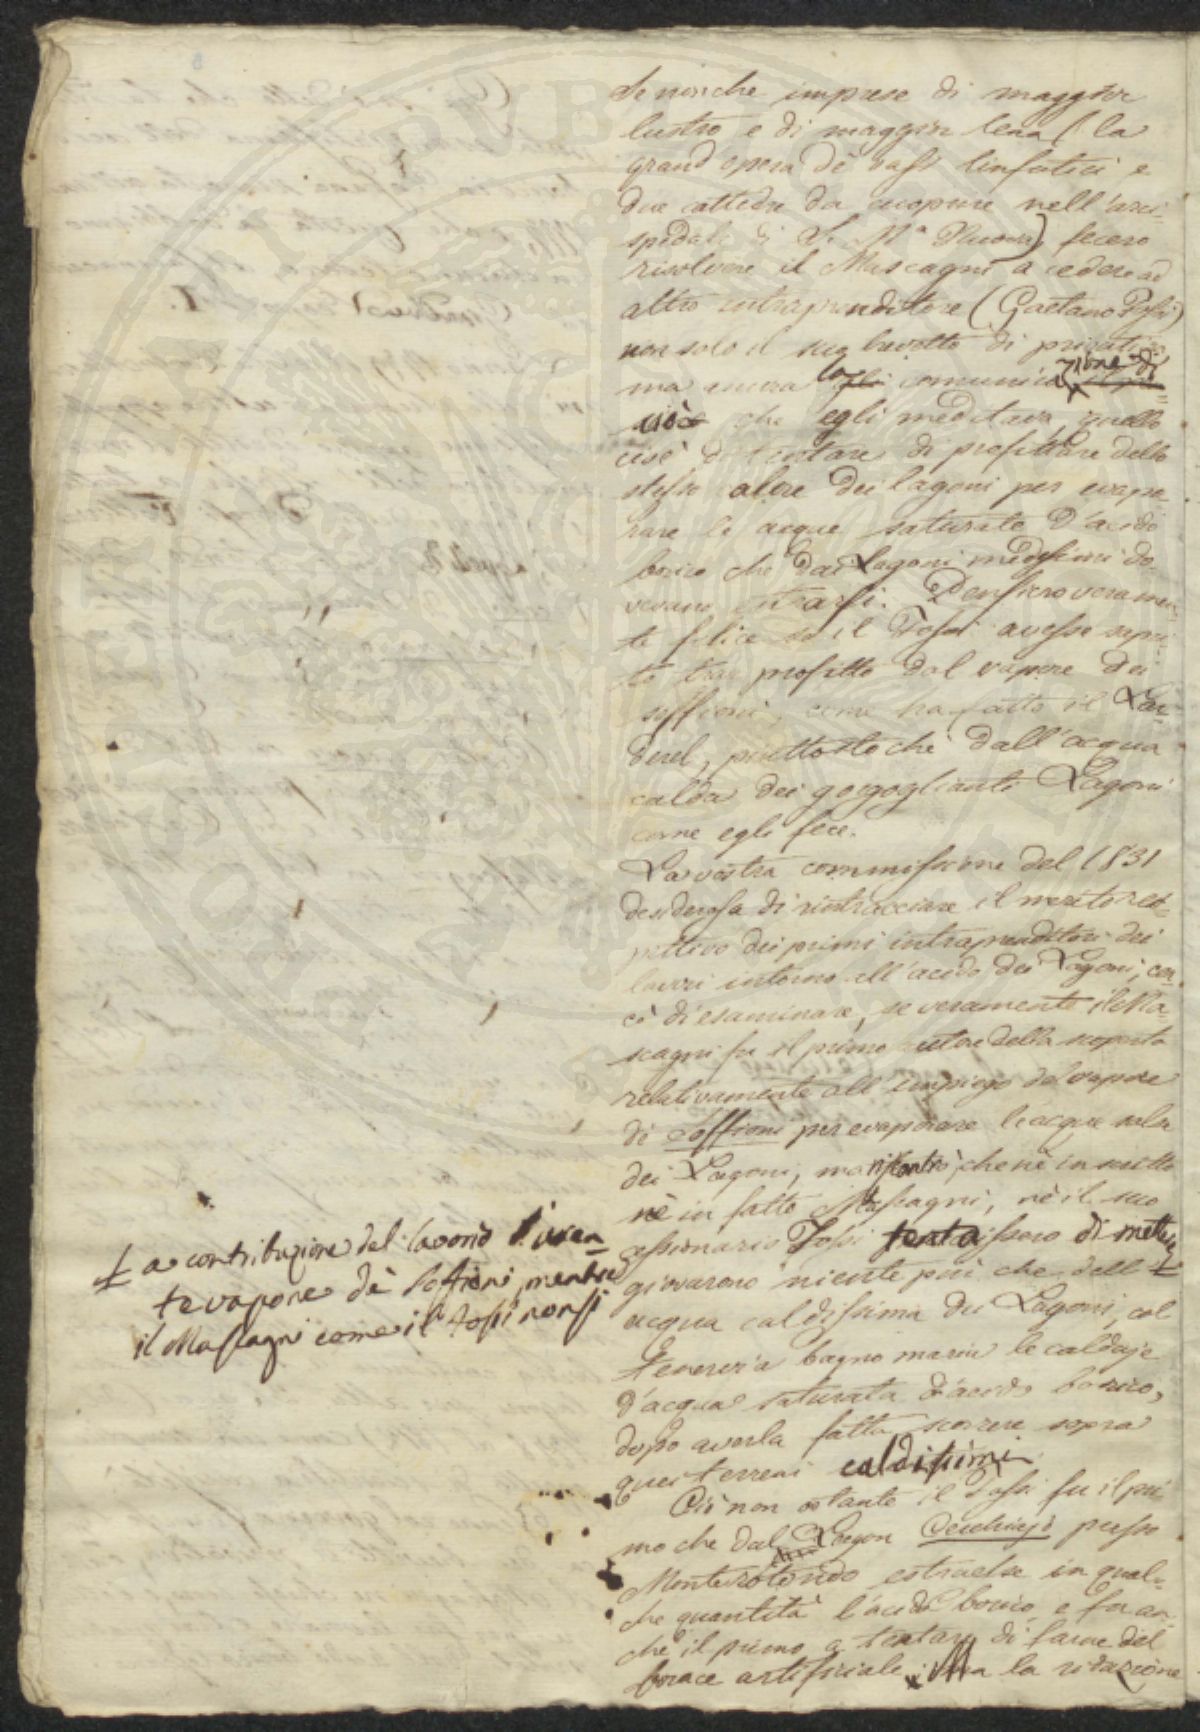 Se nonche imprese di maggior
lustro e di maggior lena (la
grand opera de' vasi linfatici e
due cattedre da occupare nell'arci-
spedale di S. Mª Nuova) fecero
risolvere il Mascagni a cedere ad
altro intraprenditore (Gaetano Tosi)
non solo il suo brevetto di privativa
ma ancora la comunicazione di
ciò che egli meditava, quello
cioè di tentare di profittare dello
stesso calore dei lagoni per evapo-
rare le acque saturate d'acido
borico che dai Lagoni medesimi do-
vevano estrarsi. Pensiero veramen-
te felice se il Tosi avesse sapu-
to trar profitto dal vapore dei
soffioni, come ha fatto il Lar-
derel, piuttosto che dall'acqua
calda dei gorgoglianti Lagoni
come egli fece.
La vostra commissione del 1831
desiderosa di rintracciare il merito ris-
pettivo dei primi intraprenditori dei
lavori intorno all'acido dei Lagoni, cer-
cò di esaminare, se veramente il Ma-
scagni fu il primo autore della scoperta
relativamente all'impiego del vapore
di soffioni per evaporare le acque salse
dei Lagoni, ma riscontrò che nè in scritto
nè in fatto Mascagni, nè il suo
cessionario Tosi tentassero di mettere
a contribuzione del lavorio l'uscen-
te vapore de' Soffioni, mentre
il Mascagni come il Tosi non si
giovarono niente più che dell'
acqua caldissima dei Lagoni, col
tenervi a bagno maria le caldaje
d'acqua saturata d'acido borico,
dopo averla fatta scorrere sopra
quei terreni caldissimi.
Ciò non ostante il Tosi fu il pri-
mo che dal Lagon Cerchiajo presso
Monterotondo estraesse in qual-
che quantità l'acido borico, e fu an-
che il primo a tentare di farne del
borace artificiale. Ma la